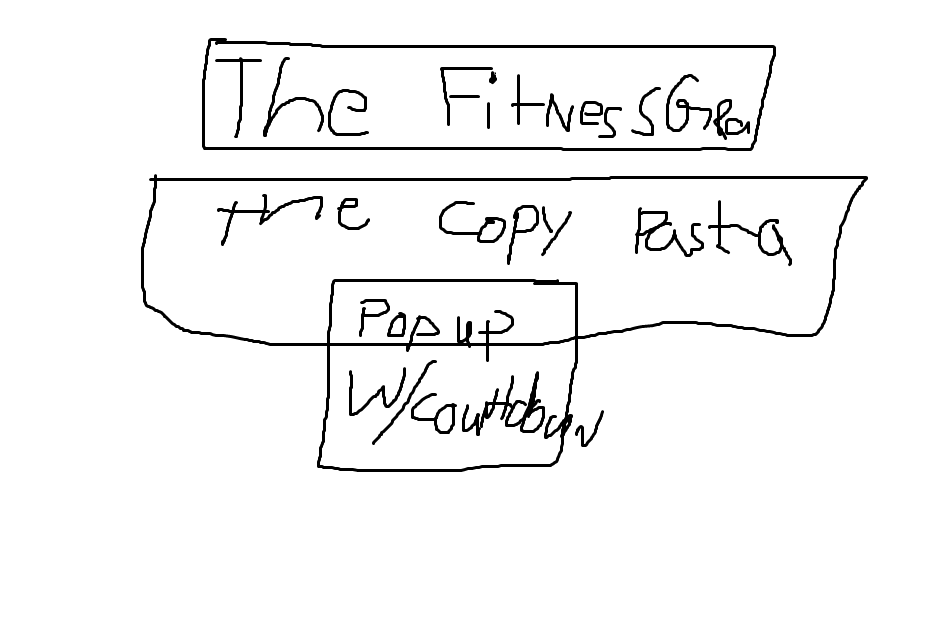 The FitnessGra
the copy Pasta
Popup
W/countdown